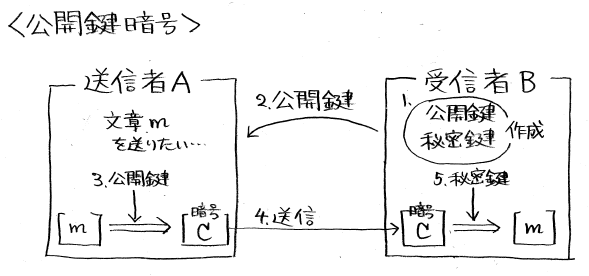 <公開鍵暗号>
送信者A
文章m
を送りたい…
3.公開鍵
m
暗号
C
2.公開鍵
4.送信
受信者B
1.
公開鍵
秘密鍵
作成
5.秘密鍵
暗号
C
m